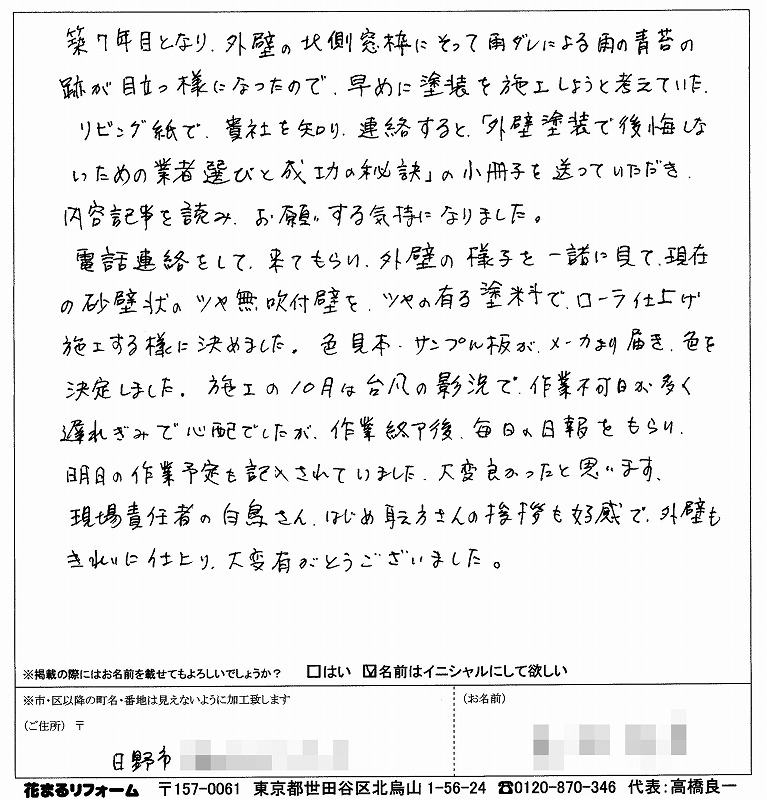 築7年目となり、外壁の北側窓枠にそって雨ダレによる雨の青苔の
跡が目立つ様になったので、早めに塗装を施工しようと考えていた。
リビング紙で、貴社を知り、連絡すると、「外壁塗装で後悔しな
いための業者選びと成功の秘訣」の小冊子を送っていただき、
内容記事を読み、お願いする気持になりました。
電話連絡をして、来てもらい、外壁の様子を一諸に見て、現在
の砂壁状のツヤ無吹付壁を、ツヤの有る塗料で、ローラ仕上げ
施工する様に決めました。色見本・サンプル板が、メーカより届き、色を
決定しました。施工の10月は台風の影況で、作業不可日が多く
遅れぎみで心配でしたが、作業終了後、毎日の日報をもらい、
明日の作業予定も記入されていました、大変良かったと思います、
現場責任者の白鳥さん、はじめ職方さんの挨拶も好感で、外壁も
きれいに仕上り、大変有がとうございました。
※掲載の際にはお名前を載せてもよろしいでしょうか？ □はい ☑名前はイニシャルにして欲しい
※市・区以降の町名・番地は見えないように加工致します
（ご住所）〒
日野市
（お名前）
花まるリフォーム 〒157-0061 東京都世田谷区北烏山1-56-24 ☎0120-870-346 代表：高橋良一